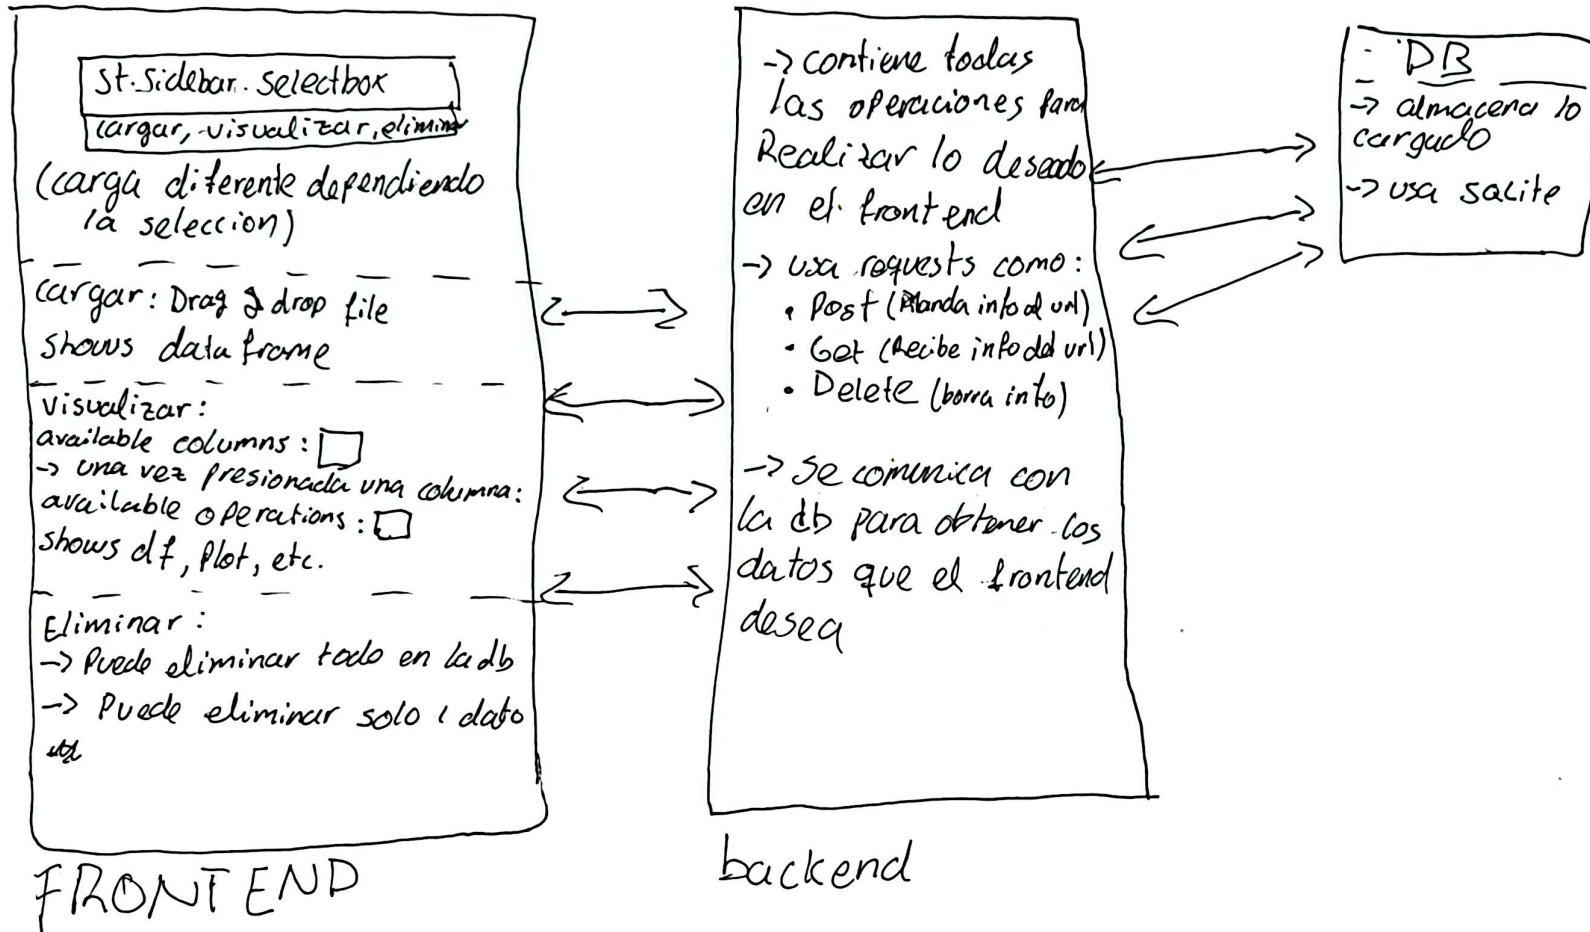 st.sidebar.selectbox
cargar, visualizar, eliminar
(carga diferente dependiendo
la seleccion)
cargar: Drag & drop file
shows data frame
visualizar:
available columns:
-> una vez presionada una columna:
available operations:
shows df, plot, etc.
Eliminar:
-> Puede eliminar todo en la db
-> Puede eliminar solo 1 dato
FRONTEND
-> contiene todas
las operaciones para
Realizar lo deseado
en el frontend
-> usa requests como:
• Post (Manda info al url)
• Get (Recibe info del url)
• Delete (borra info)
-> se comunica con
la db para obtener los
datos que el frontend
desea
backend
DB
-> almacena lo
cargado
-> usa sqlite